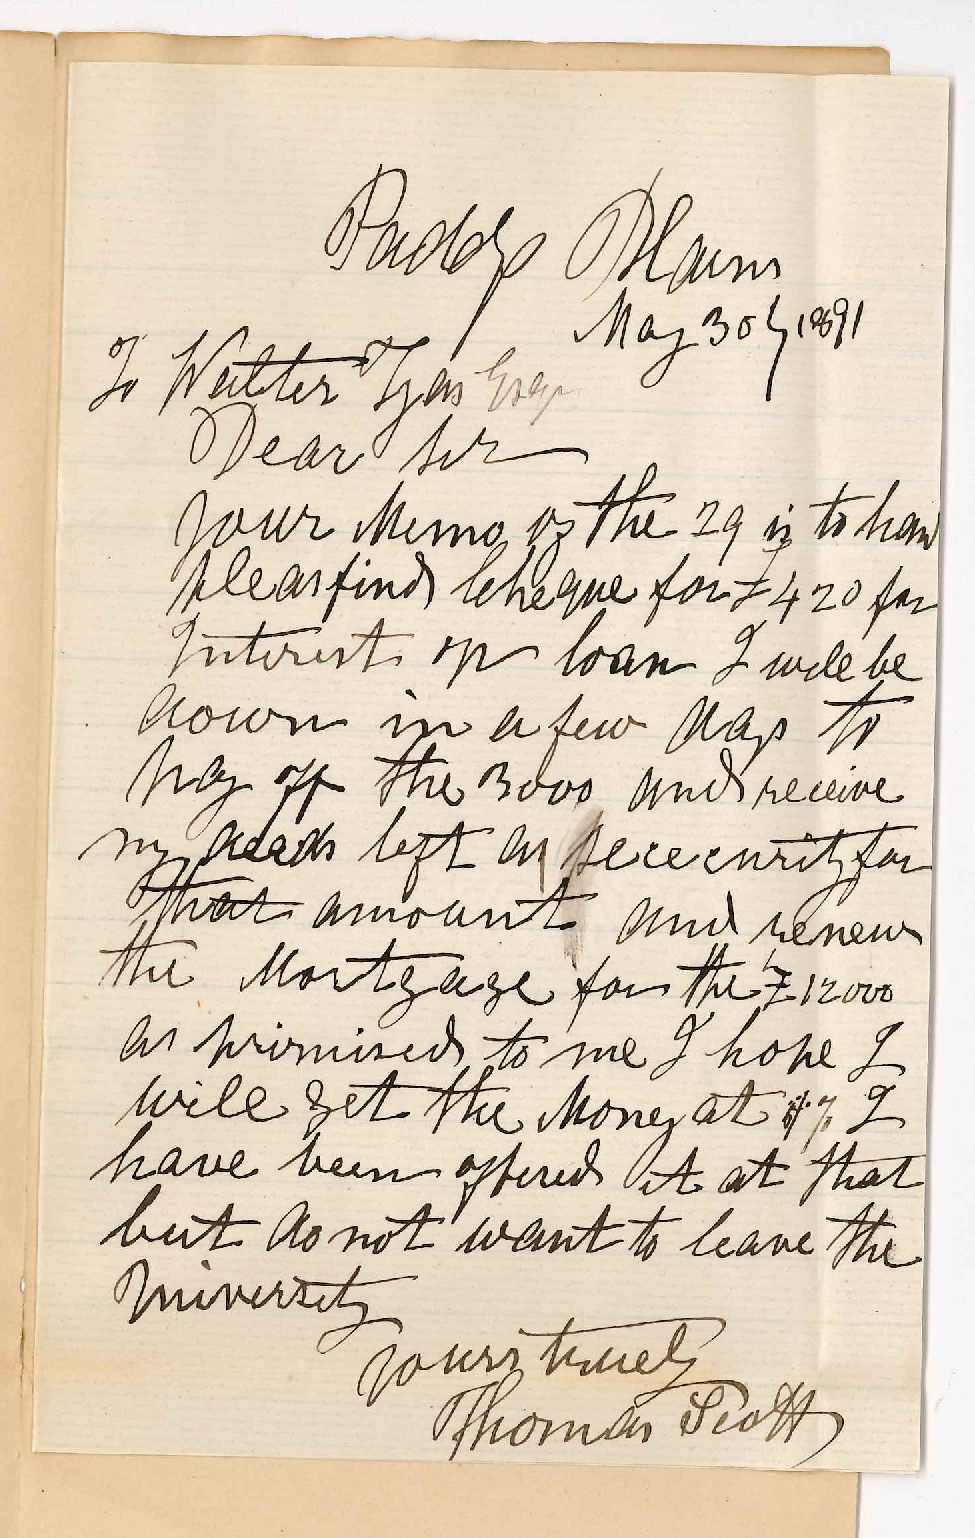 Paddys Plains
May 30th 1891
To Walter Tyas Esqr
Dear Sir
your Memo of the 29 is to han
pleas find Cheque for £420 for
Interest on loan I will be
down in a few days to
pay off the 3000 and receive
my deeds left as sececurity for
that amount and renew
the Mortgage for the £12000
as promised to me I hope I
will get the Money at % I
have been offered it at that
but do not want to leave the
University
yours truely
Thomas Scott